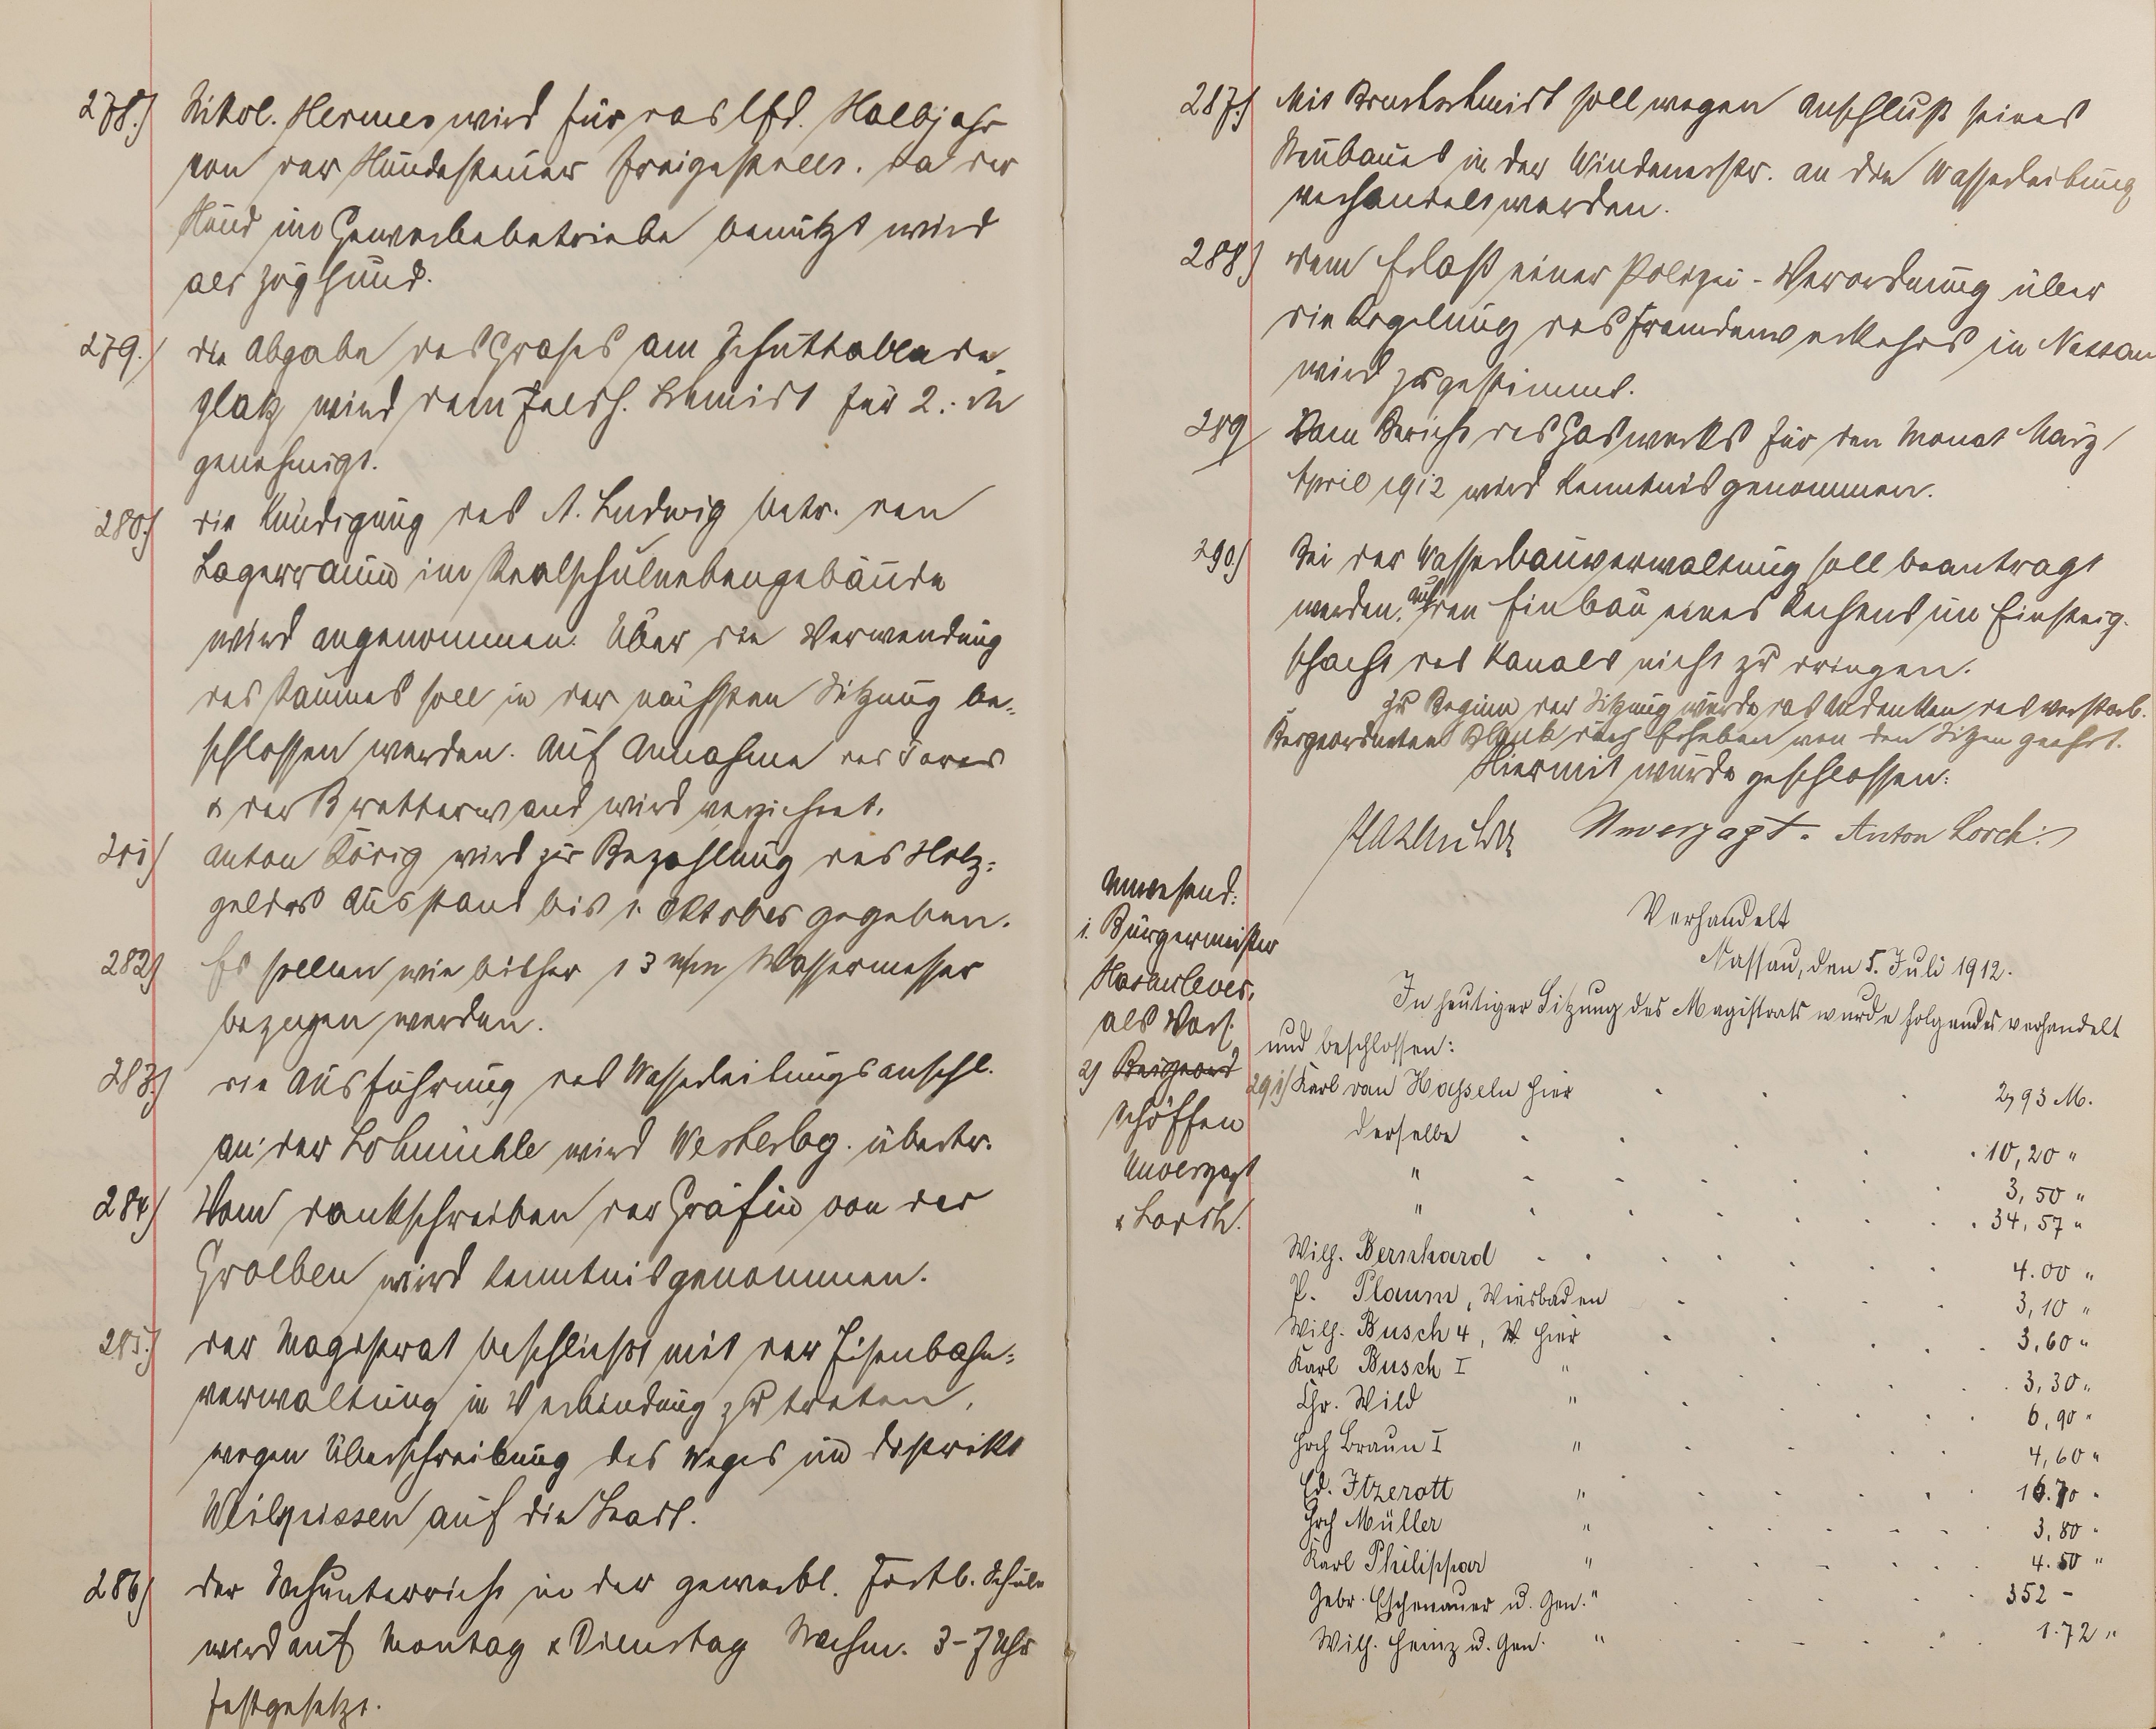 278.) Nikol. Hermes wird für das lfd. Halbjahr
von der Hundesteuer freigestellt. da der
Hund im Gewerbebetriebe benützt wird
als Zughund.
279.) die Abgabe des Grases am Schuttablade-
platz wird dem Feldh. Schmidt für 2.- M
genehmigt.
280.) die Kündigung des A. Ludwig betr. den
Lagerraum im Realschulnebengebäude
wird angenommen. Über die Verwendung
des Raumes soll in der nächsten Sitzung be-
schlossen werden. Auf Annahme des Tores
& der Bretterwand wird verzichtet.
281) Anton Körig wird zur Bezahlung des Holz-
geldes Ausstand bis 1. Oktober gegeben.
282) Es sollen wie bisher 13 m/m Wassermesser
bezogen werden.
283.) die Ausführung des Wasserleitungsanschl.
an der Lohmühle wird Westerbg. übertr.
284) Vom Dankschreiben der Gräfin von der
Groeben wird Kenntnis genommen.
285.) der Magistrat beschließt mit der Eisenbahn-
verwaltung in Verbindung zu treten,
wegen Überschreibung des Weges im Distrikt
auf die Stadt.
286) der Sachunterricht in der gewerbl. Fortb. Schule
wird auf Montag & Dienstag Nachm. 3-7 Uhr
festgesetzt.
287.) Mit Bruchschmidt soll wegen Anschluß seines
Neubaues in der Windenerstr. an die Wasserleitung
verhandelt werden.
288) dem Erlaß einer Polizei-Verordnung über
die Regelung des Fremdenverkehrs in Nassau
wird zugestimmt.
289) Vom Bericht des Gaswerks für den Monat März/
April 1912 wird Kenntnis genommen.
290.) Bei der Wasserbauverwaltung soll beantragt
werden, auf den Einbau eines Rechens im Einsteig-
schacht des Kanals nicht zu dringen.
Zu Beginn der Sitzung wurde das Andenken des verstorb.
Beigeordneten durch Erheben von den Sitzen geehrt.
Hiermit wurde geschlossen:
Unverzagt. Anton Lorch.
Anwesend:
1. Bürgermeister
Hasenclever,
als Vors.
2) Beigeord
Schöffen
Unverzagt
& Lorch.
Verhandelt
Nassau, den 5. Juli 1912.
In heutiger Sitzung des Magistrats wurde folgendes verhandelt
und beschlossen:
291) Karl von Hasseln hier 2,93 M.
Derselbe 10,20 "
" 3,50 "
" 34,57 "
Wilh. Bernhard 4.00 "
P. Plaum, Wiesbaden 3,10 "
Wilh. Busch 4, hier 3,60 "
Karl Busch I " 3,30 "
Chr. Wild " 6,90 "
Hch Braun I " 4,60 "
Ed. Itzerott " 16.70 "
Hch Müller " 3,80 "
Karl Philippar " 4.50 "
Gebr. Eschenauer u. Gen. " 352 -
Wilh. Heinz u. Gen. " 1.72 "